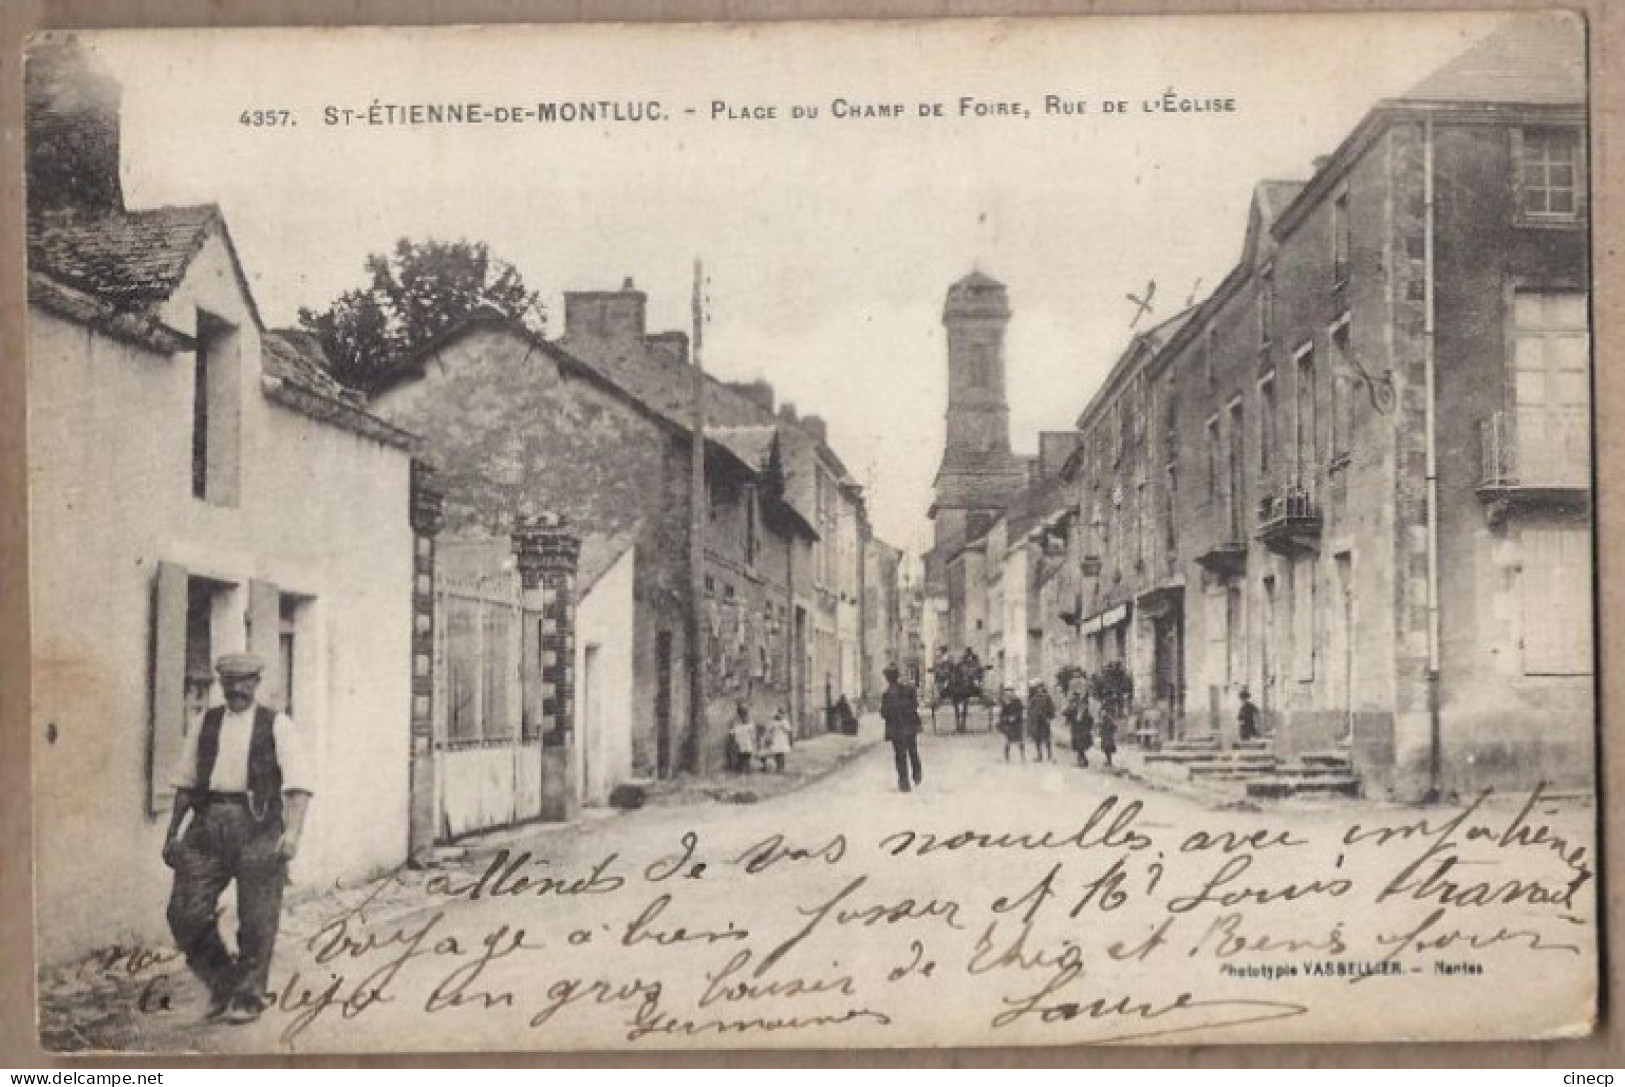 4357. ST-ÉTIENNE-DE-MONTLUC. - PLACE DU CHAMP DE FOIRE, RUE DE L'ÉGLISE
J attend de vos nouvelles avec impatience
voyage a bien passer et Mr Louis travail
le deja un gros baiser de et René pour
Phototypie VASSELLIER. - Nantes
germaine Laure
www.delcampe.net
cinecp